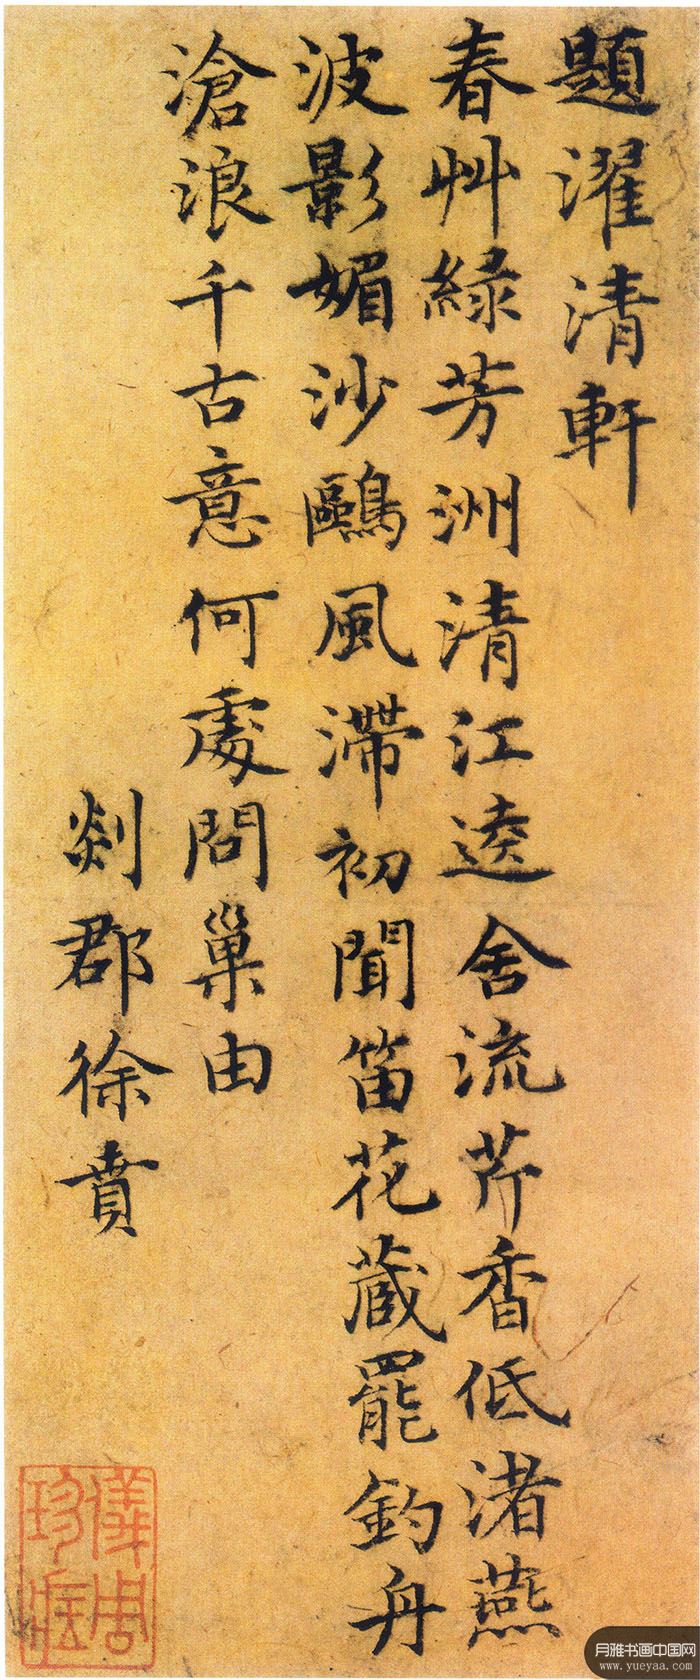 題濯清軒
春艸綠芳洲清江逺舍流芹香低渚燕
波影媚沙鷗風滯初聞笛花蔵罷釣舟
滄浪千古意何處問巢由
剡郡徐賁
儀周珍藏
月雅书画中国网
www.yueyaa.com